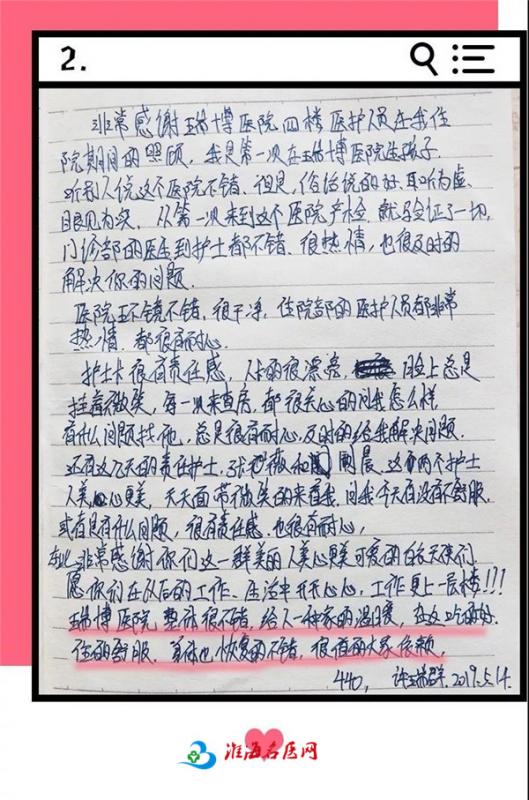 2.
非常感谢瑞博医院四楼医护人员在我住
院期间的照顾，我是第一次在瑞博医院生孩子.
听别人说这个医院不错，但是，俗话说的好，耳听为虚，
眼见为实，从第一次来到这个医院产检，就验证了一切，
门诊部的医生到护士都不错，很热情，也很及时的
解决你的问题.
医院环镜不错，很干净，住院部的医护人员都非常
热情，都很有耐心.
护士长很有责任感，人长的很漂亮，脸上总是
挂着微笑，每一次来查房，都很关心的问我怎么样
有什么问题找他，总是很有耐心，及时的给我解决问题.
还有这几天的责任护士，张 薇和 晨，这两个护士
人美心更美，天天面带微笑的来看我，问我今天有没有不舒服.
或者是有什么问题，很有责任感，也很有耐心，
在此非常感谢你们这一群美的人美心更美可爱的白衣天使们
愿你们在以后的工作、生活中开开心心，工作更上一层楼!!!
瑞博医院，整体很不错，给人一种家的温暖，在这吃的好.
住的舒服，身体也恢复的不错，很值的大家依赖，
440， 许 群. 2019.5.14.
淮海名医网